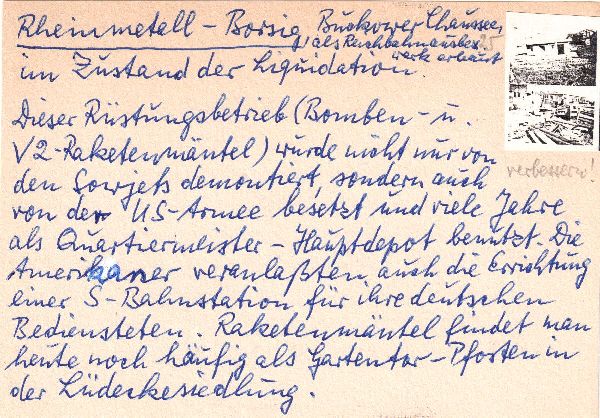 Rheinmetall - Borsig, Buckower Chaussee,
als Reichbahnausbes
werk erbaut
im Zustand der Liquidation.
25
Dieser Rüstungsbetrieb (Bomben- u.
V2-Raketenmäntel) wurde nicht nur von
verbessern!
den Sowjets demontiert, sondern auch
von der US-Armee besetzt und viele Jahre
als Quartiermeister-Hauptdepot benutzt. Die
Amerikaner veranlaßten auch die Errichtung
einer S-Bahnstation für ihre deutschen
Bediensteten. Raketenmäntel findet man
heute noch häufig als Gartentor-Pfosten in
der Lüderkesiedlung.